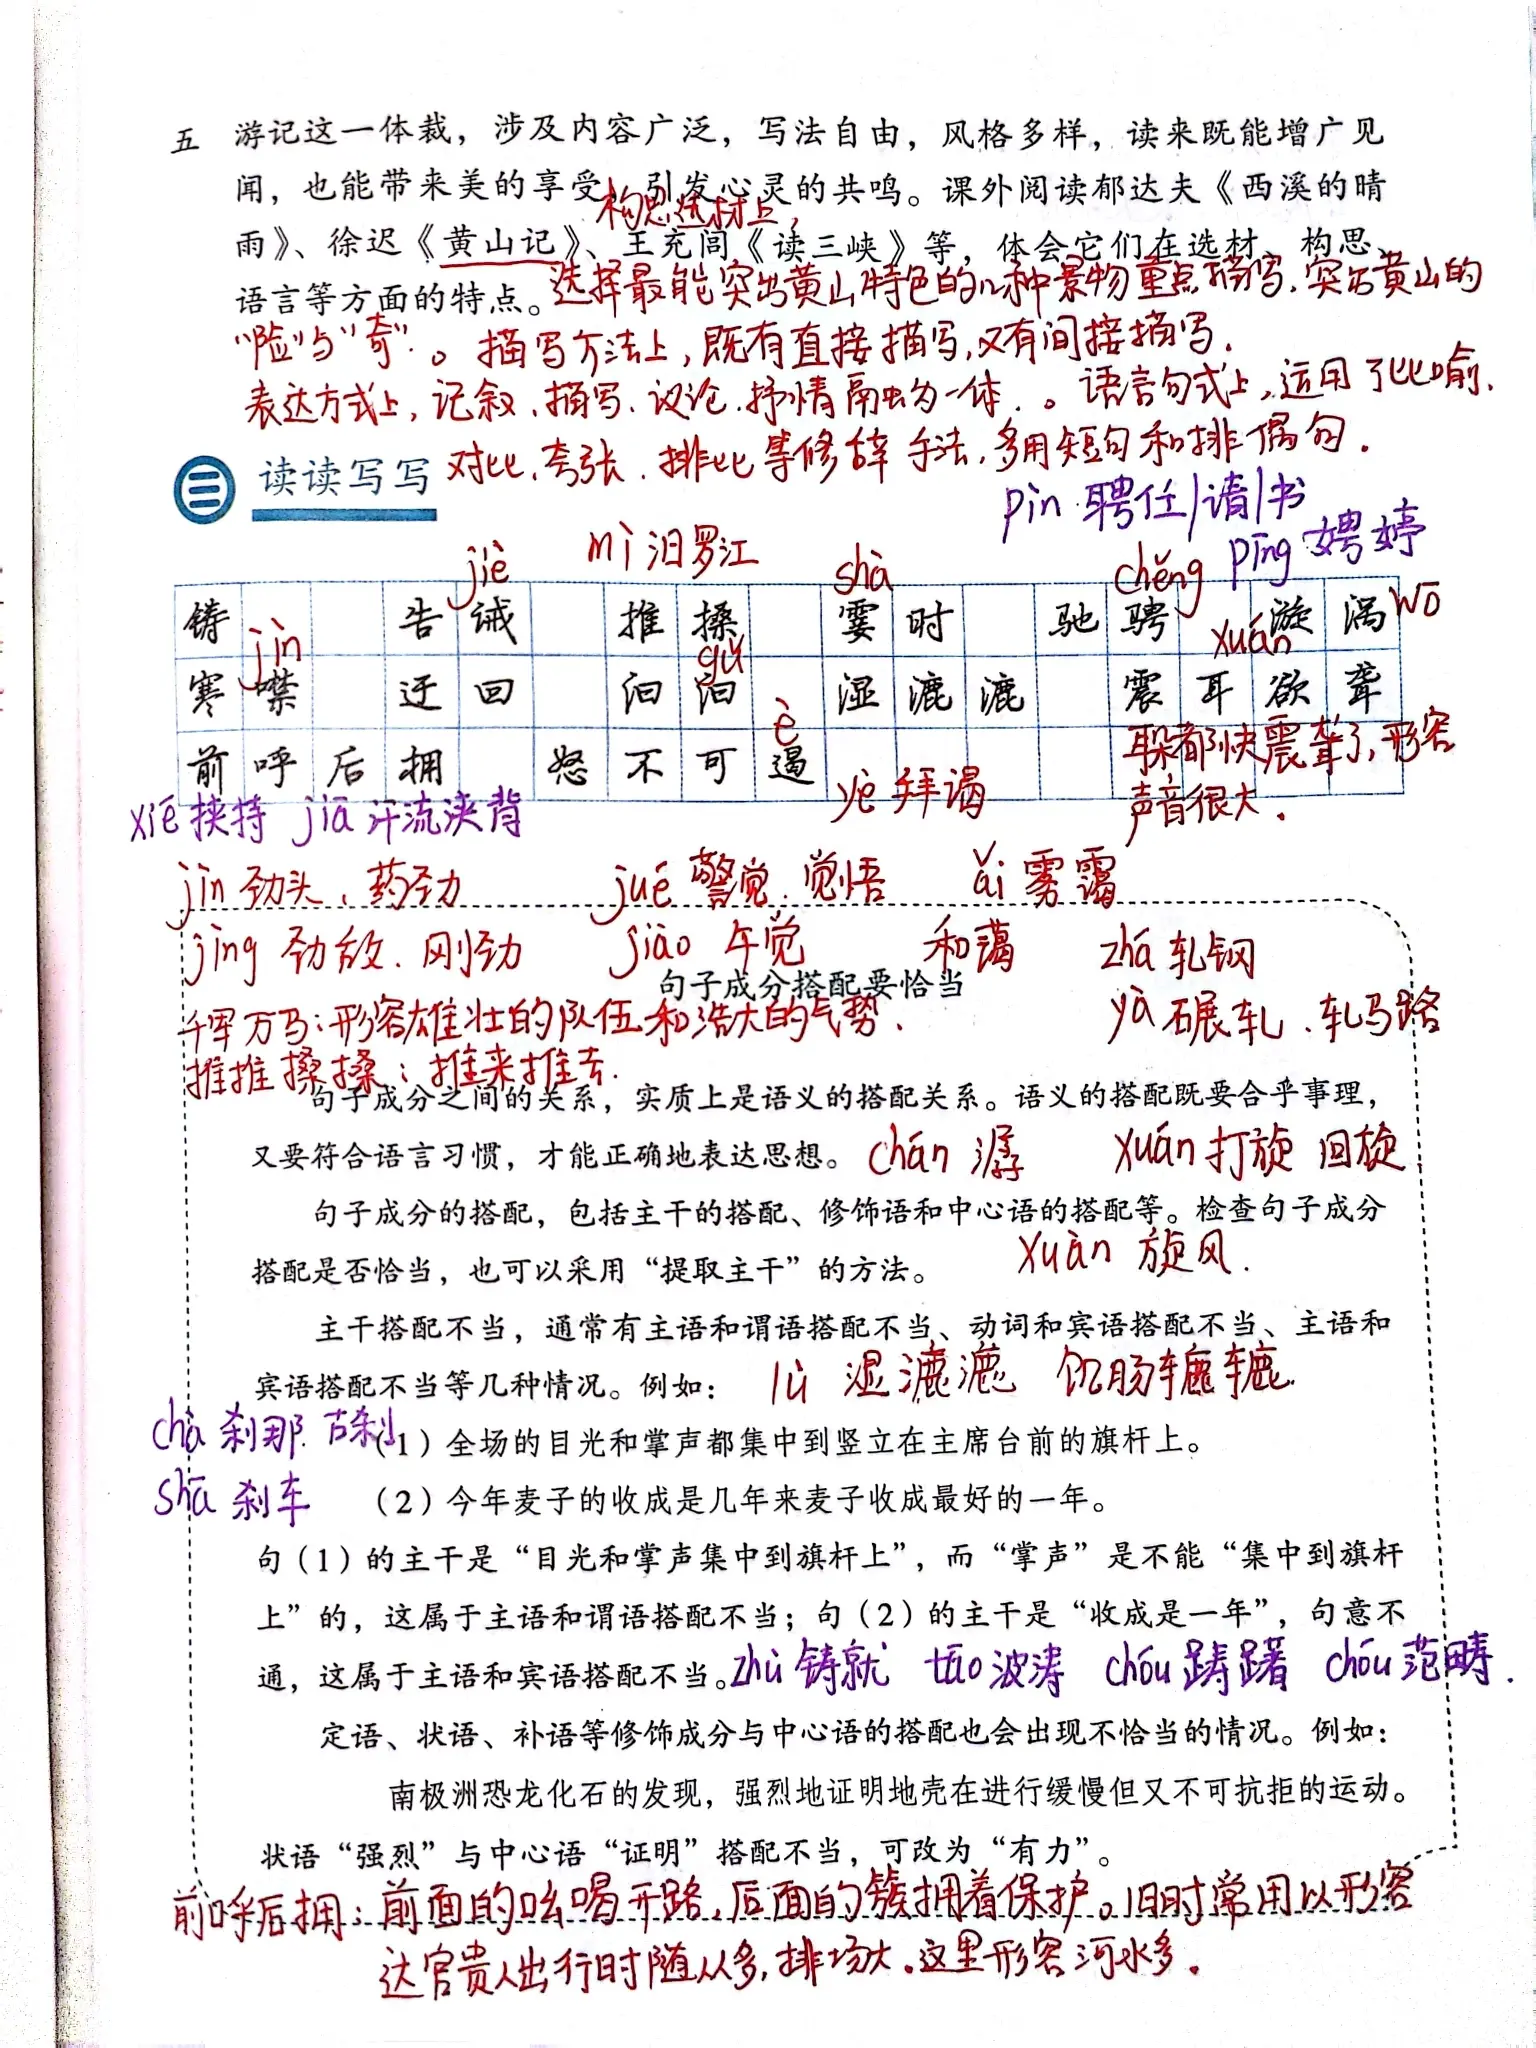 五 游记这一体裁，涉及内容广泛，写法自由，风格多样，读来既能增广见
闻，也能带来美的享受，引发心灵的共鸣。课外阅读郁达夫《西溪的晴
构思选材上，
雨》、徐迟《黄山记》、王充闾《读三峡》等，体会它们在选材、构思、
语言等方面的特点。选择最能突出黄山特色的几种景物重点描写，突出黄山的
“险”与“奇”。描写方法上，既有直接描写，又有间接描写。
表达方式上，记叙、描写、议论、抒情融为一体。。语言句式上，运用了比喻、
读读写写 对比、夸张、排比等修辞手法，多用短句和排偶句。
pìn 聘任/请/书
jiè mì 汨罗江 shà chěng pīng 娉婷
铸 告诫 推搡 霎时 驰骋 漩涡 wō
jìn gǔ xuán
寒噤 迂回 汩汩 湿漉漉 震耳欲聋
è
前呼后拥 怒不可遏 耳朵都快震聋了，形容
yè 拜谒 声音很大。
xié 挟持 jiā 汗流浃背
jìn 劲头、药劲 jué 警觉、觉悟 ǎi 雾霭
jìng 劲敌、刚劲 jiào 午觉 和蔼 zhá 轧钢
句子成分搭配要恰当
千军万马：形容雄壮的队伍和浩大的气势。 yà 碾轧、轧马路
推推搡搡：推来推去。
句子成分之间的关系，实质上是语义的搭配关系。语义的搭配既要合乎事理，
又要符合语言习惯，才能正确地表达思想。 chán 潺 xuán 打旋 回旋
句子成分的搭配，包括主干的搭配、修饰语和中心语的搭配等。检查句子成分
搭配是否恰当，也可以采用“提取主干”的方法。 xuàn 旋风.
主干搭配不当，通常有主语和谓语搭配不当、动词和宾语搭配不当、主语和
宾语搭配不当等几种情况。例如： lù 湿漉漉 饥肠辘辘
chà 刹那、古刹
（1）全场的目光和掌声都集中到竖立在主席台前的旗杆上。
shā 刹车 （2）今年麦子的收成是几年来麦子收成最好的一年。
句（1）的主干是“目光和掌声集中到旗杆上”，而“掌声”是不能“集中到旗杆
上”的，这属于主语和谓语搭配不当；句（2）的主干是“收成是一年”，句意不
通，这属于主语和宾语搭配不当。zhù 铸就 tāo 波涛 chóu 踌躇 chóu 范畴.
定语、状语、补语等修饰成分与中心语的搭配也会出现不恰当的情况。例如：
南极洲恐龙化石的发现，强烈地证明地壳在进行缓慢但又不可抗拒的运动。
状语“强烈”与中心语“证明”搭配不当，可改为“有力”。
前呼后拥：前面的吆喝开路，后面的簇拥着保护。旧时常用以形容
达官贵人出行时随从多，排场大。这里形容河水多。